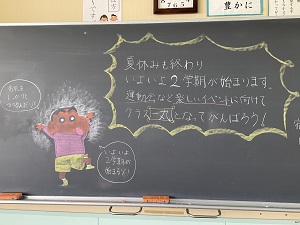 豊かに
765
夏休みも終わり
いよいよ2学期が始まります。
運動会など楽しいイベントに向けて
クラス一丸となってがんばろう!
いよいよ
2学期の
始まるゾ!